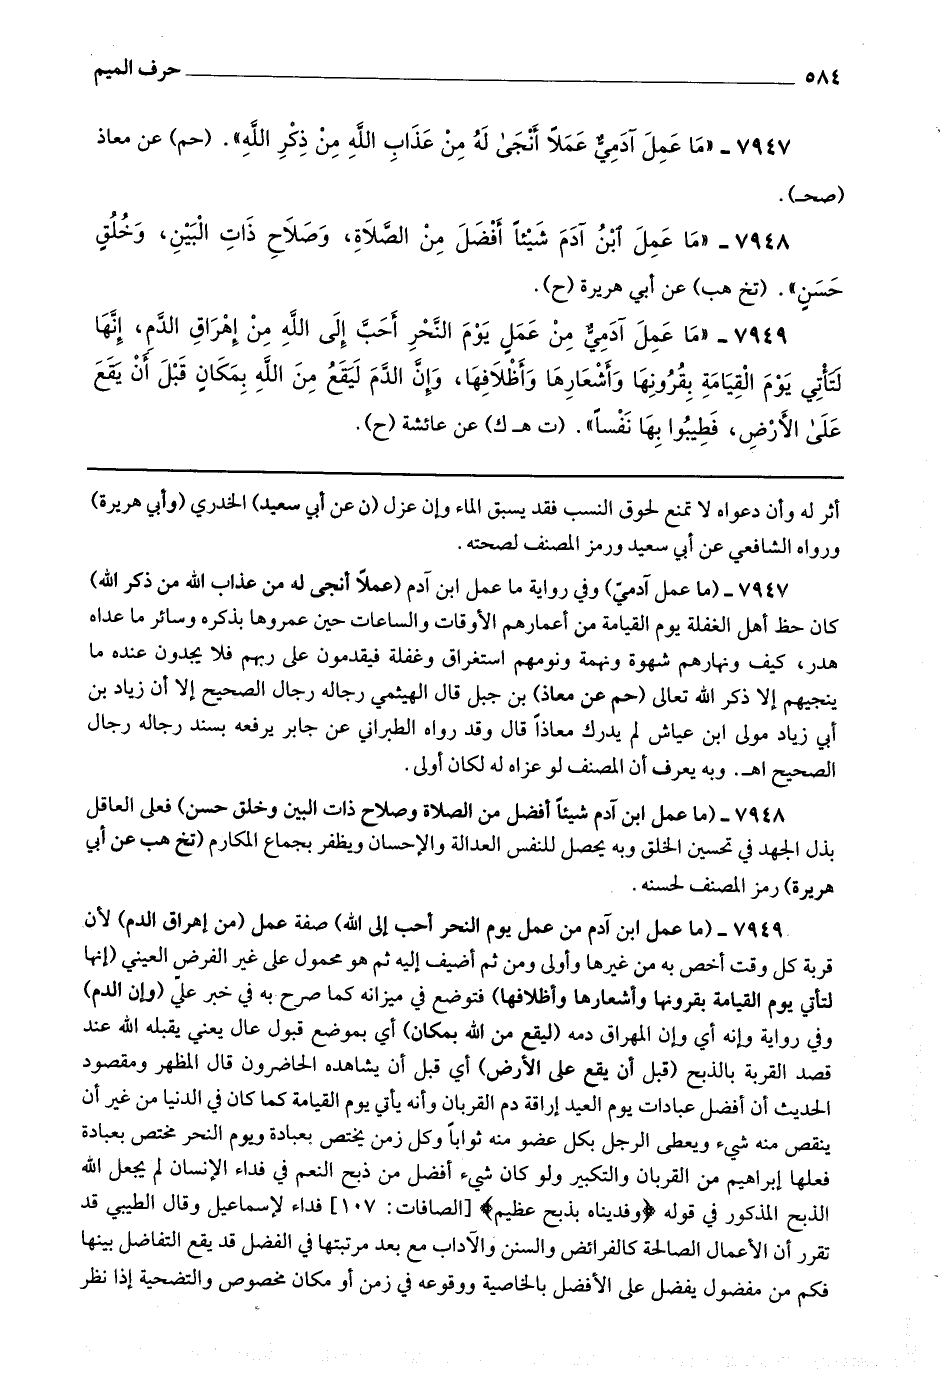 ٥٨٤ حرف الميم
٧٩٤٧ ـ «مَا عَمِلَ آدَمِيٌّ عَمَلاً أَنْجَىٰ لَهُ مِنْ عَذَابِ اللَّهِ مِنْ ذِكْرِ اللَّهِ». (حم) عن معاذ
(صحـ).
٧٩٤٨ ـ «مَا عَمِلَ ٱبْنُ آدَمَ شَيْئاً أَفْضَلَ مِنْ الصَّلَاةِ، وَصَلَاحِ ذَاتِ الْبَيْنِ، وَخُلُقٍ
حَسَنٍ». (تخ هب) عن أبي هريرة (ح).
٧٩٤٩ ـ «مَا عَمِلَ آدَمِيٌّ مِنْ عَمَلٍ يَوْمَ النَّحْرِ أَحَبَّ إِلَى اللَّهِ مِنْ إِهْرَاقِ الدَّمِ، إِنَّهَا
لَتَأْتِي يَوْمَ الْقِيَامَةِ بِقُرُونِهَا وَأَشْعَارِهَا وَأَظْلَافِهَا، وَإِنَّ الدَّمَ لَيَقَعُ مِنَ اللَّهِ بِمَكَانٍ قَبْلَ أَنْ يَقَعَ
عَلَىٰ الأَرْضِ، فَطِيبُوا بِهَا نَفْساً». (ت هـ ك) عن عائشة (ح).
أثر له وأن دعواه لا تمنع لحوق النسب فقد يسبق الماء وإن عزل (ن عن أبي سعيد) الخدري (وأبي هريرة)
ورواه الشافعي عن أبي سعيد ورمز المصنف لصحته.
٧٩٤٧ ـ (ما عمل آدميّ) وفي رواية ما عمل ابن آدم (عملاً أنجى له من عذاب الله من ذكر الله)
كان حظ أهل الغفلة يوم القيامة من أعمارهم الأوقات والساعات حين عمروها بذكره وسائر ما عداه
هدر، كيف ونهارهم شهوة ونهمة ونومهم استغراق وغفلة فيقدمون على ربهم فلا يجدون عنده ما
ينجيهم إلا ذكر الله تعالى (حم عن معاذ) بن جبل قال الهيثمي رجاله رجال الصحيح إلا أن زياد بن
أبي زياد مولى ابن عياش لم يدرك معاذاً قال وقد رواه الطبراني عن جابر يرفعه بسند رجاله رجال
الصحيح اهـ. وبه يعرف أن المصنف لو عزاه له لكان أولى.
٧٩٤٨ ـ (ما عمل ابن آدم شيئاً أفضل من الصلاة وصلاح ذات البين وخلق حسن) فعلى العاقل
بذل الجهد في تحسين الخلق وبه يحصل للنفس العدالة والإحسان ويظفر بجماع المكارم (تخ هب عن أبي
هريرة) رمز المصنف لحسنه.
٧٩٤٩ ـ (ما عمل ابن آدم من عمل يوم النحر أحب إلى الله) صفة عمل (من إهراق الدم) لأن
قربة كل وقت أخص به من غيرها وأولى ومن ثم أضيف إليه ثم هو محمول على غير الفرض العيني (إنها
لتأتي يوم القيامة بقرونها وأشعارها وأظلافها) فتوضع في ميزانه كما صرح به في خبر عليّ (وإن الدم)
وفي رواية وإنه أي وإن المهراق دمه (ليقع من الله بمكان) أي بموضع قبول عال يعني يقبله الله عند
قصد القربة بالذبح (قبل أن يقع على الأرض) أي قبل أن يشاهده الحاضرون قال المظهر ومقصود
الحديث أن أفضل عبادات يوم العيد إراقة دم القربان وأنه يأتي يوم القيامة كما كان في الدنيا من غير أن
ينقص منه شيء ويعطى الرجل بكل عضو منه ثواباً وكل زمن يختص بعبادة ويوم النحر مختص بعبادة
فعلها إبراهيم من القربان والتكبير ولو كان شيء أفضل من ذبح النعم في فداء الإنسان لم يجعل الله
الذبح المذكور في قوله ﴿وفديناه بذبح عظيم﴾ [الصافات: ١٠٧] فداء لإسماعيل وقال الطيبي قد
تقرر أن الأعمال الصالحة كالفرائض والسنن والآداب مع بعد مرتبتها في الفضل قد يقع التفاضل بينها
فكم من مفضول يفضل على الأفضل بالخاصية ووقوعه في زمن أو مكان مخصوص والتضحية إذا نظر